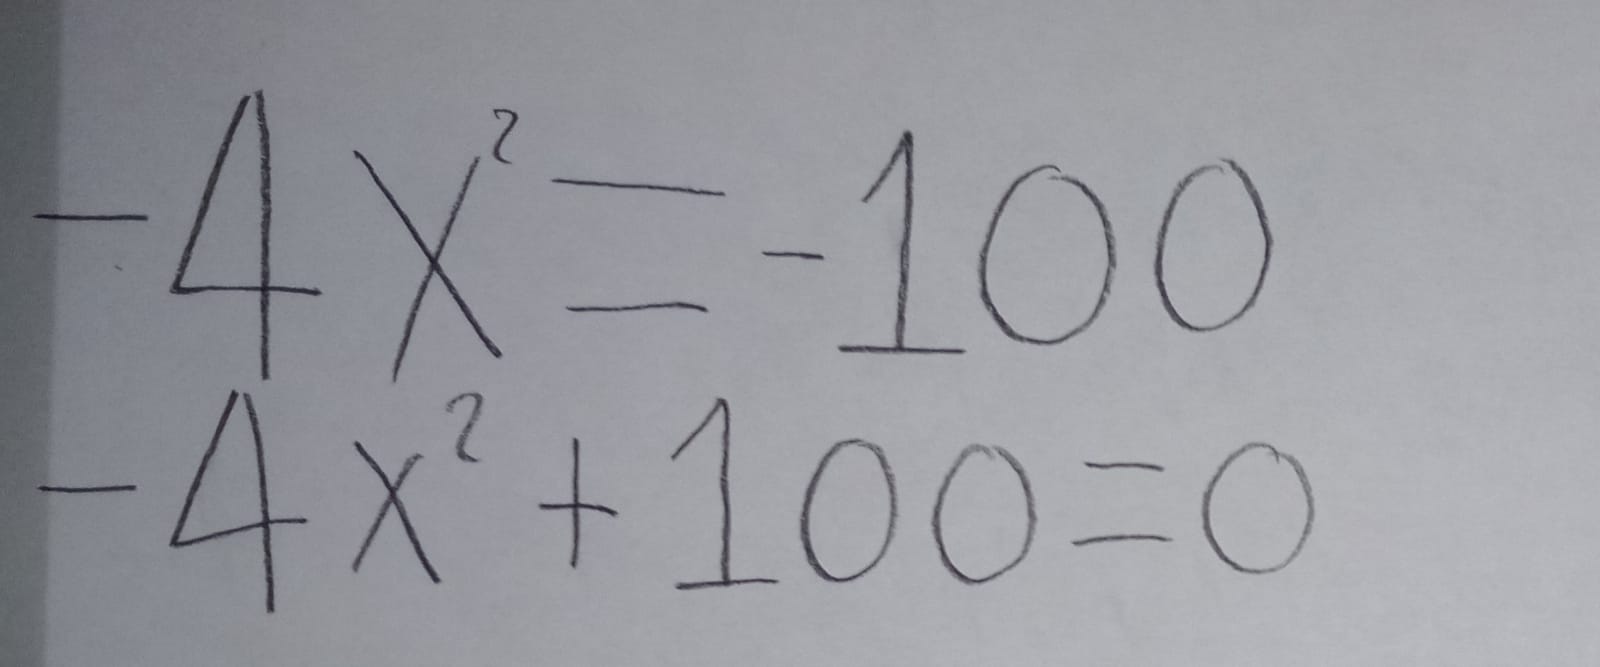 -4x²=-100
-4x²+100=0